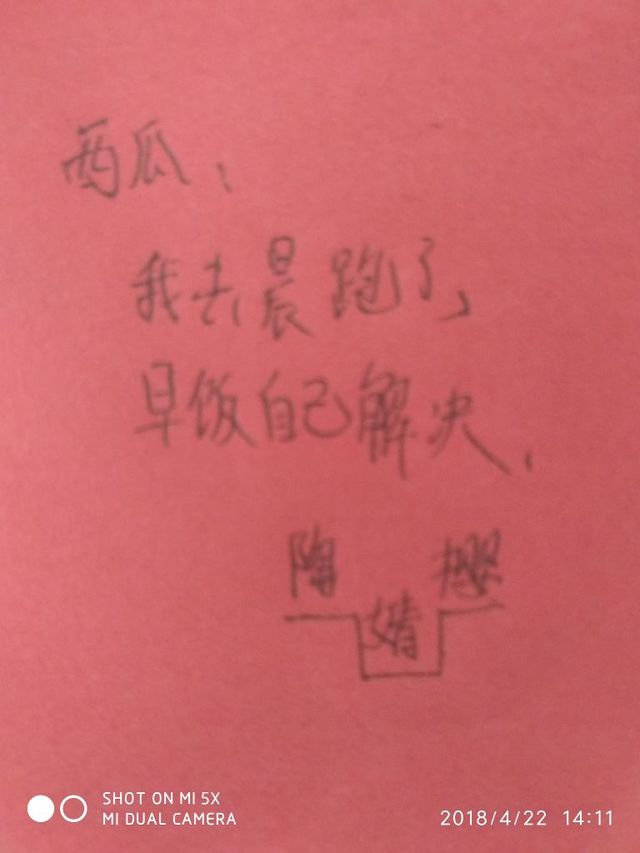 西瓜：
我去晨跑了，
早饭自己解决.
陶 樱
婧
SHOT ON MI 5X
MI DUAL CAMERA
2018/4/22 14:11